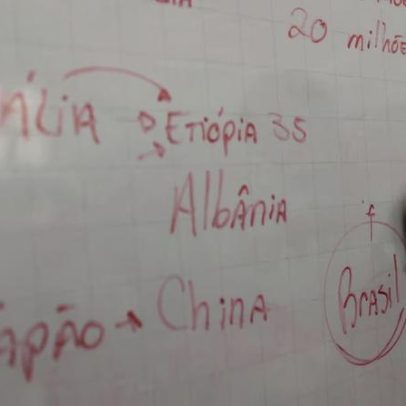 20 milhõe
ália → Etiópia 35
Albânia
apão → China
Brasil